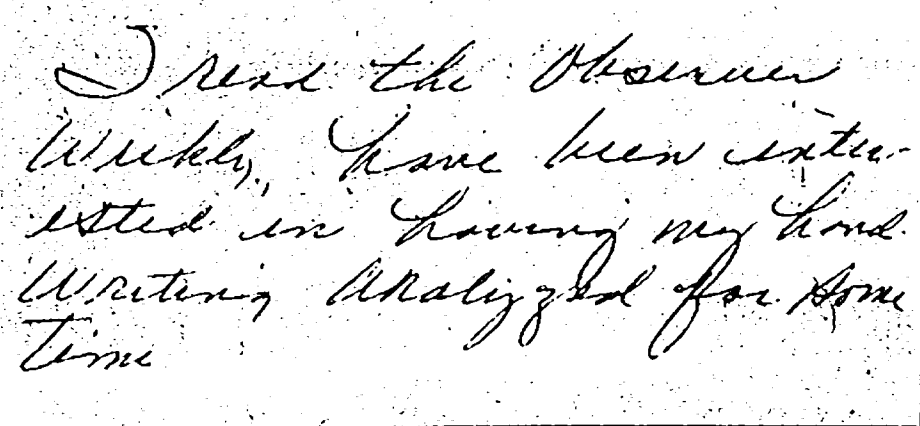 I read the Observer
Weekly, have been inter-
ested in having my hand
Writing Analizzed for some
time